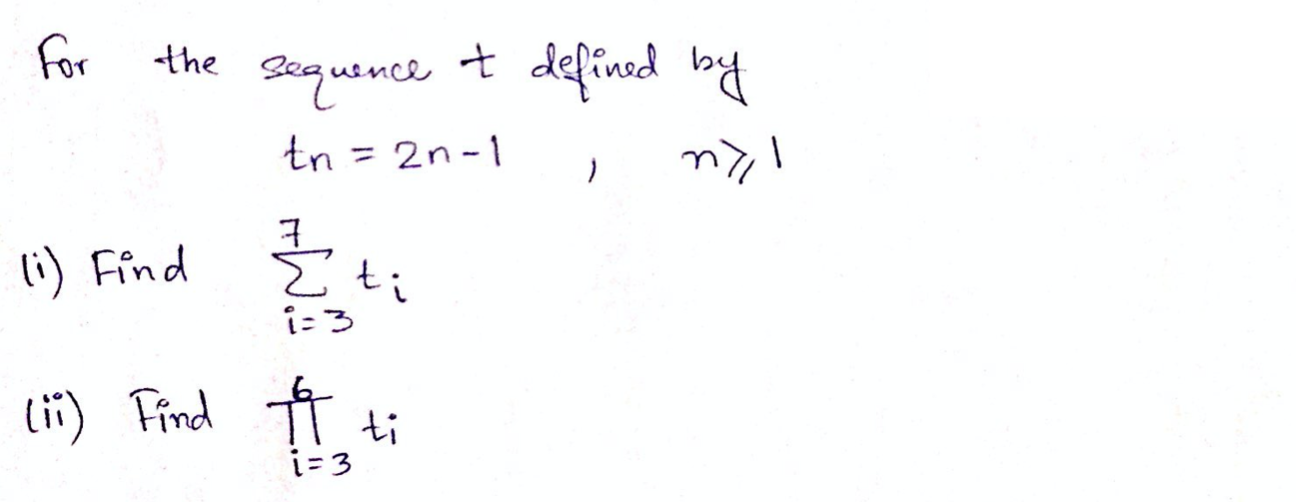 For the sequence t defined by
tn = 2n-1 , n⩾1
(i) Find 7∑i=3 ti
(ii) Find 6∏i=3 ti